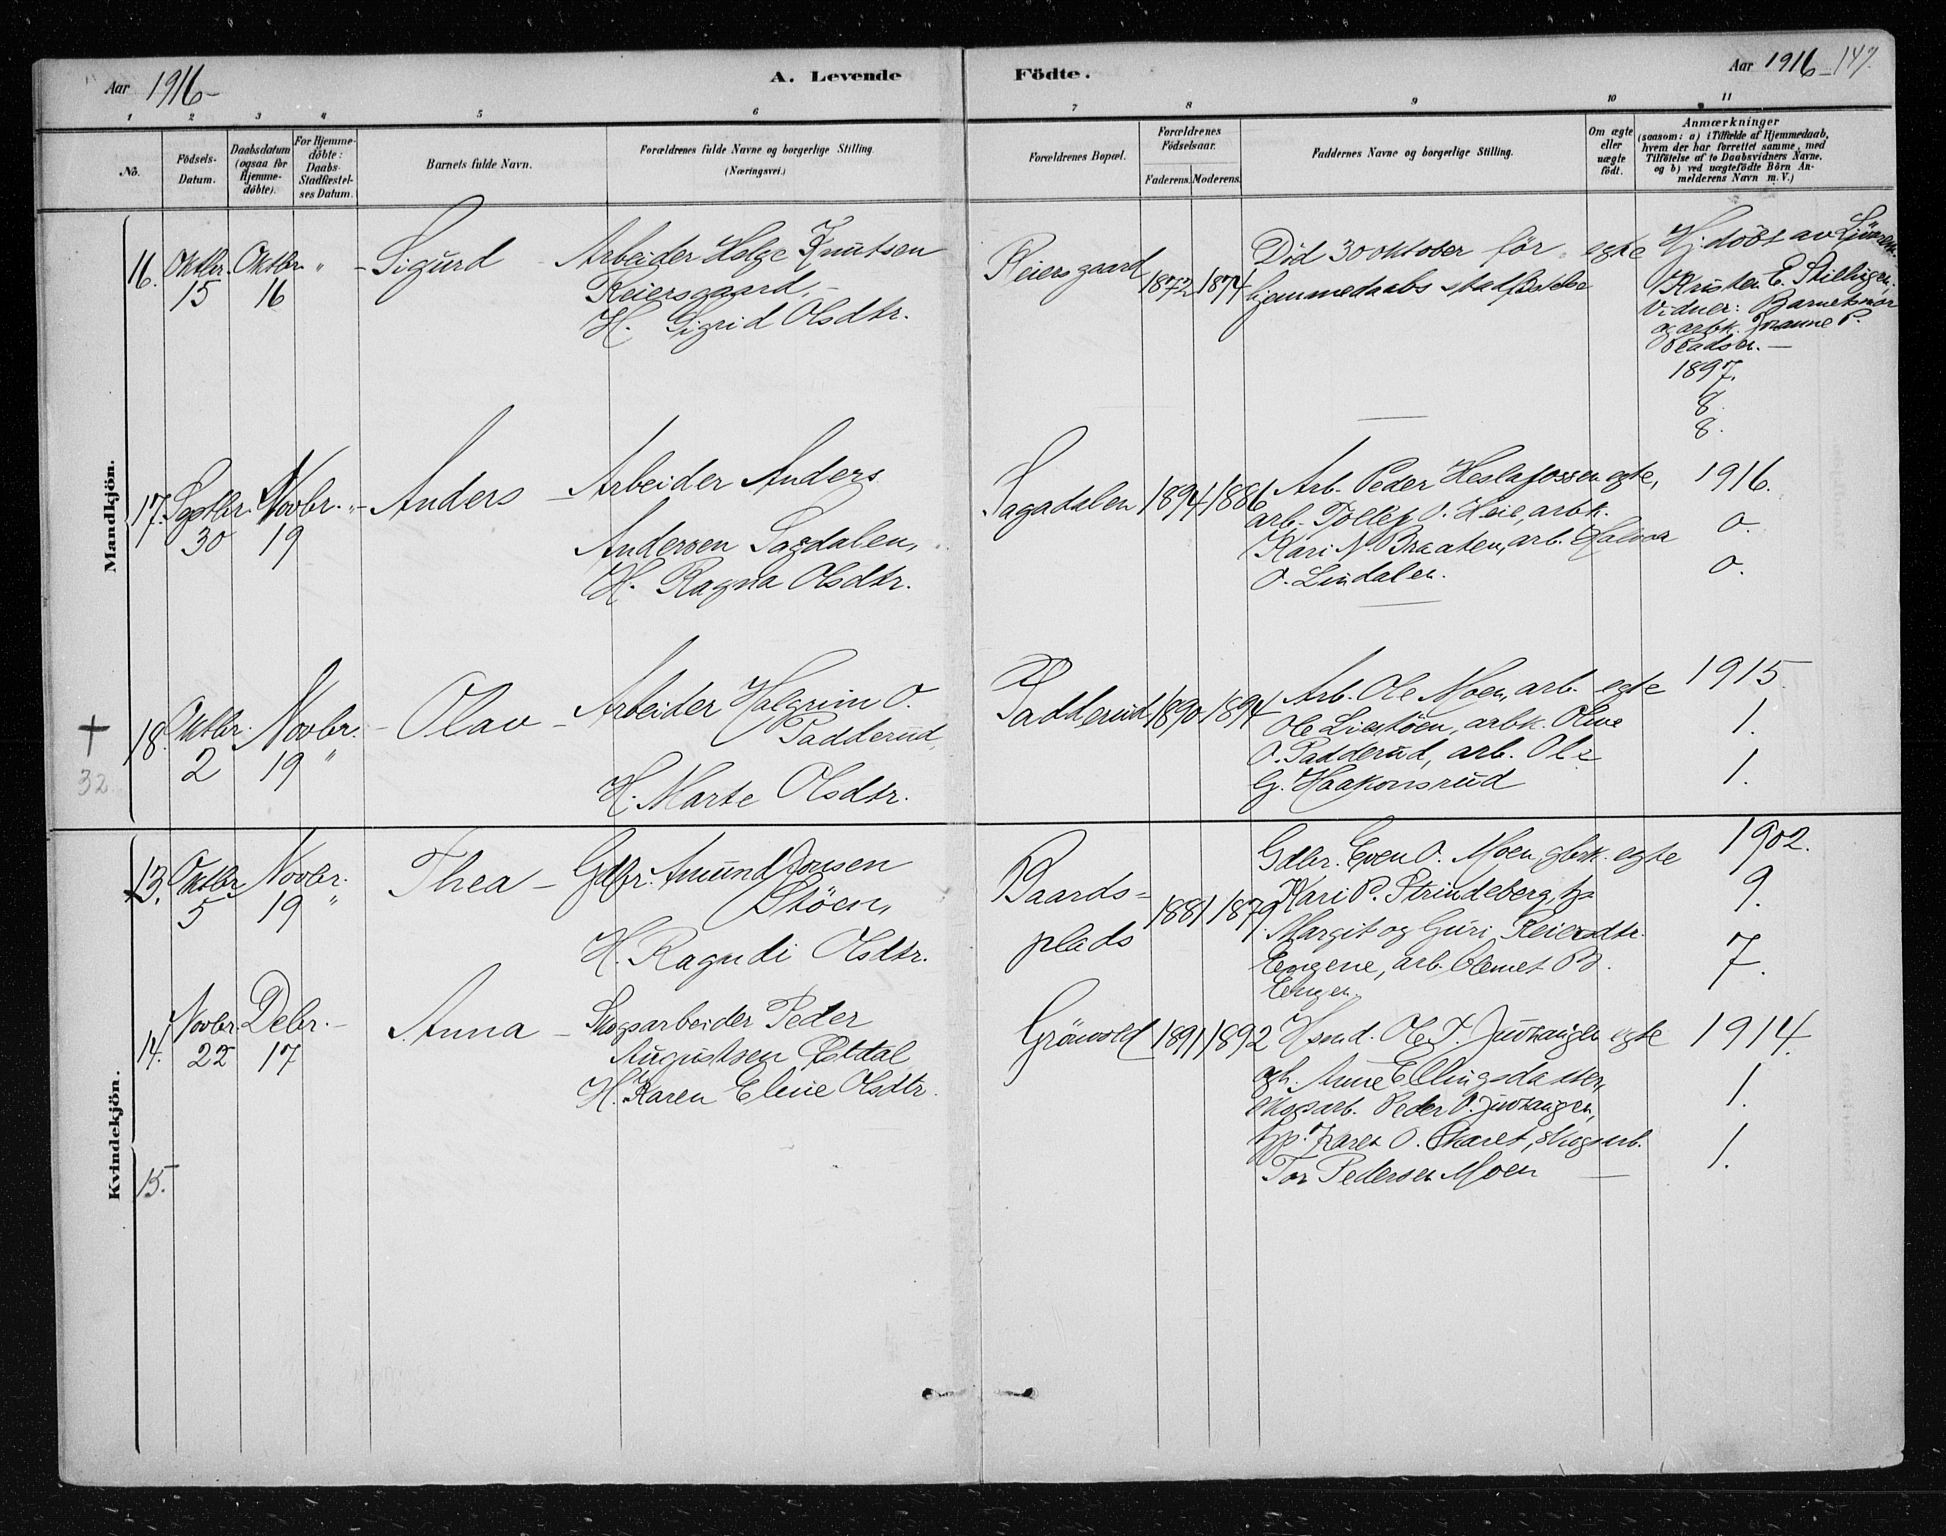 Aar 1916- A. Levende Födte. Aar 1916- 147.
1 2 3 4 5 6 7 8 9 10 11
No.
Födsels-
Datum.
Daabsdatum
(ogsaa for
Hjemme-
döbte).
For Hjemme-
döbte:
Daabs
Stadfæstel-
ses Datum.
Barnets fulde Navn.
Forældrenes fulde Navne og borgerlige Stilling.
(Næringsvei.)
Forældrenes Bopæl.
Forældrenes
Födselsaar.
Faderens. Moderens.
Faddernes Navne og borgerlige Stilling.
Om ægte
eller
uægte
födt.
Anmærkninger
(saasom: a) i Tilfælde af Hjemmedaab,
hvem der har forrettet samme, med
Tilföielse af to Daabsvidners Navne,
og b) ved uægtefödte Börn An-
melderens Navn m. V.)
Mandkjön.
16. Oktbr. 15 Oktbr. 16 " - Sigurd -
Arbeider Helge Knutsen
Keiersgaard,-
H. Sigrid Olsdtr.
Keiersgaard 1872 1874
Död 30 oktober för
hjemmedaabs stadfæstelse
egte
Hj.döbt av
Kristen E.
Vidner: Barnetsmor
og arbk.
1897.
8.
8.
17. Septbr. 30 Novbr. 19 "- Anders -
Arbeider Anders
Andersen Sagdalen,
H. Ragna Olsdtr.
Sagadalen 1894 1886
Arb. Peder Heslajossen egte,
arb. Tollef O. Heie, arbk.
Kari N. Braaten, arb. Halvor
O. Lindalen.
1916.
0.
0.
+ 32
18. Oktbr. 2 Novbr. 19 " - Olav -
Arbeider Halgrim O.
Padderud,
H. Marte Olsdtr.
Padderud 1890 1894
Arb. Ole Moen, arb. egte
Ole Liestöen, arbk. Oline
O. Padderud, arb. Ole
G. Haakonsrud
1915.
1.
1.
Kvindekjön.
13. Oktbr 5 Novbr. 19 " Thea -
Gdbr. Amund Jonsen
Stöen,
H. Ragndi Olsdtr.
Baards-
plads
1881 1879
Gdbr. Even O. Moen, gbrk. egte
Kari P. Strindeberg, tp
Margit og Guri Reiersdtr.
Engene, arb. Clemet B.
Engen.
1902.
9.
7.
14. Novbr. 22 Debr. 17 - Anna -
Skogsarbeider Peder
Augustsen Östdal,
H. Karen Eline Olsdtr.
Grönvold 1891 1892
Hsmd. Ole T. Juvzangen egte
og h. Anne Ellingsdatter,
skogsarb. Peder O. Juvzangen,
tp. Karen O. Skaret, skogsarb.
Tor Pedersen Moen -
1914.
1.
1.
15.